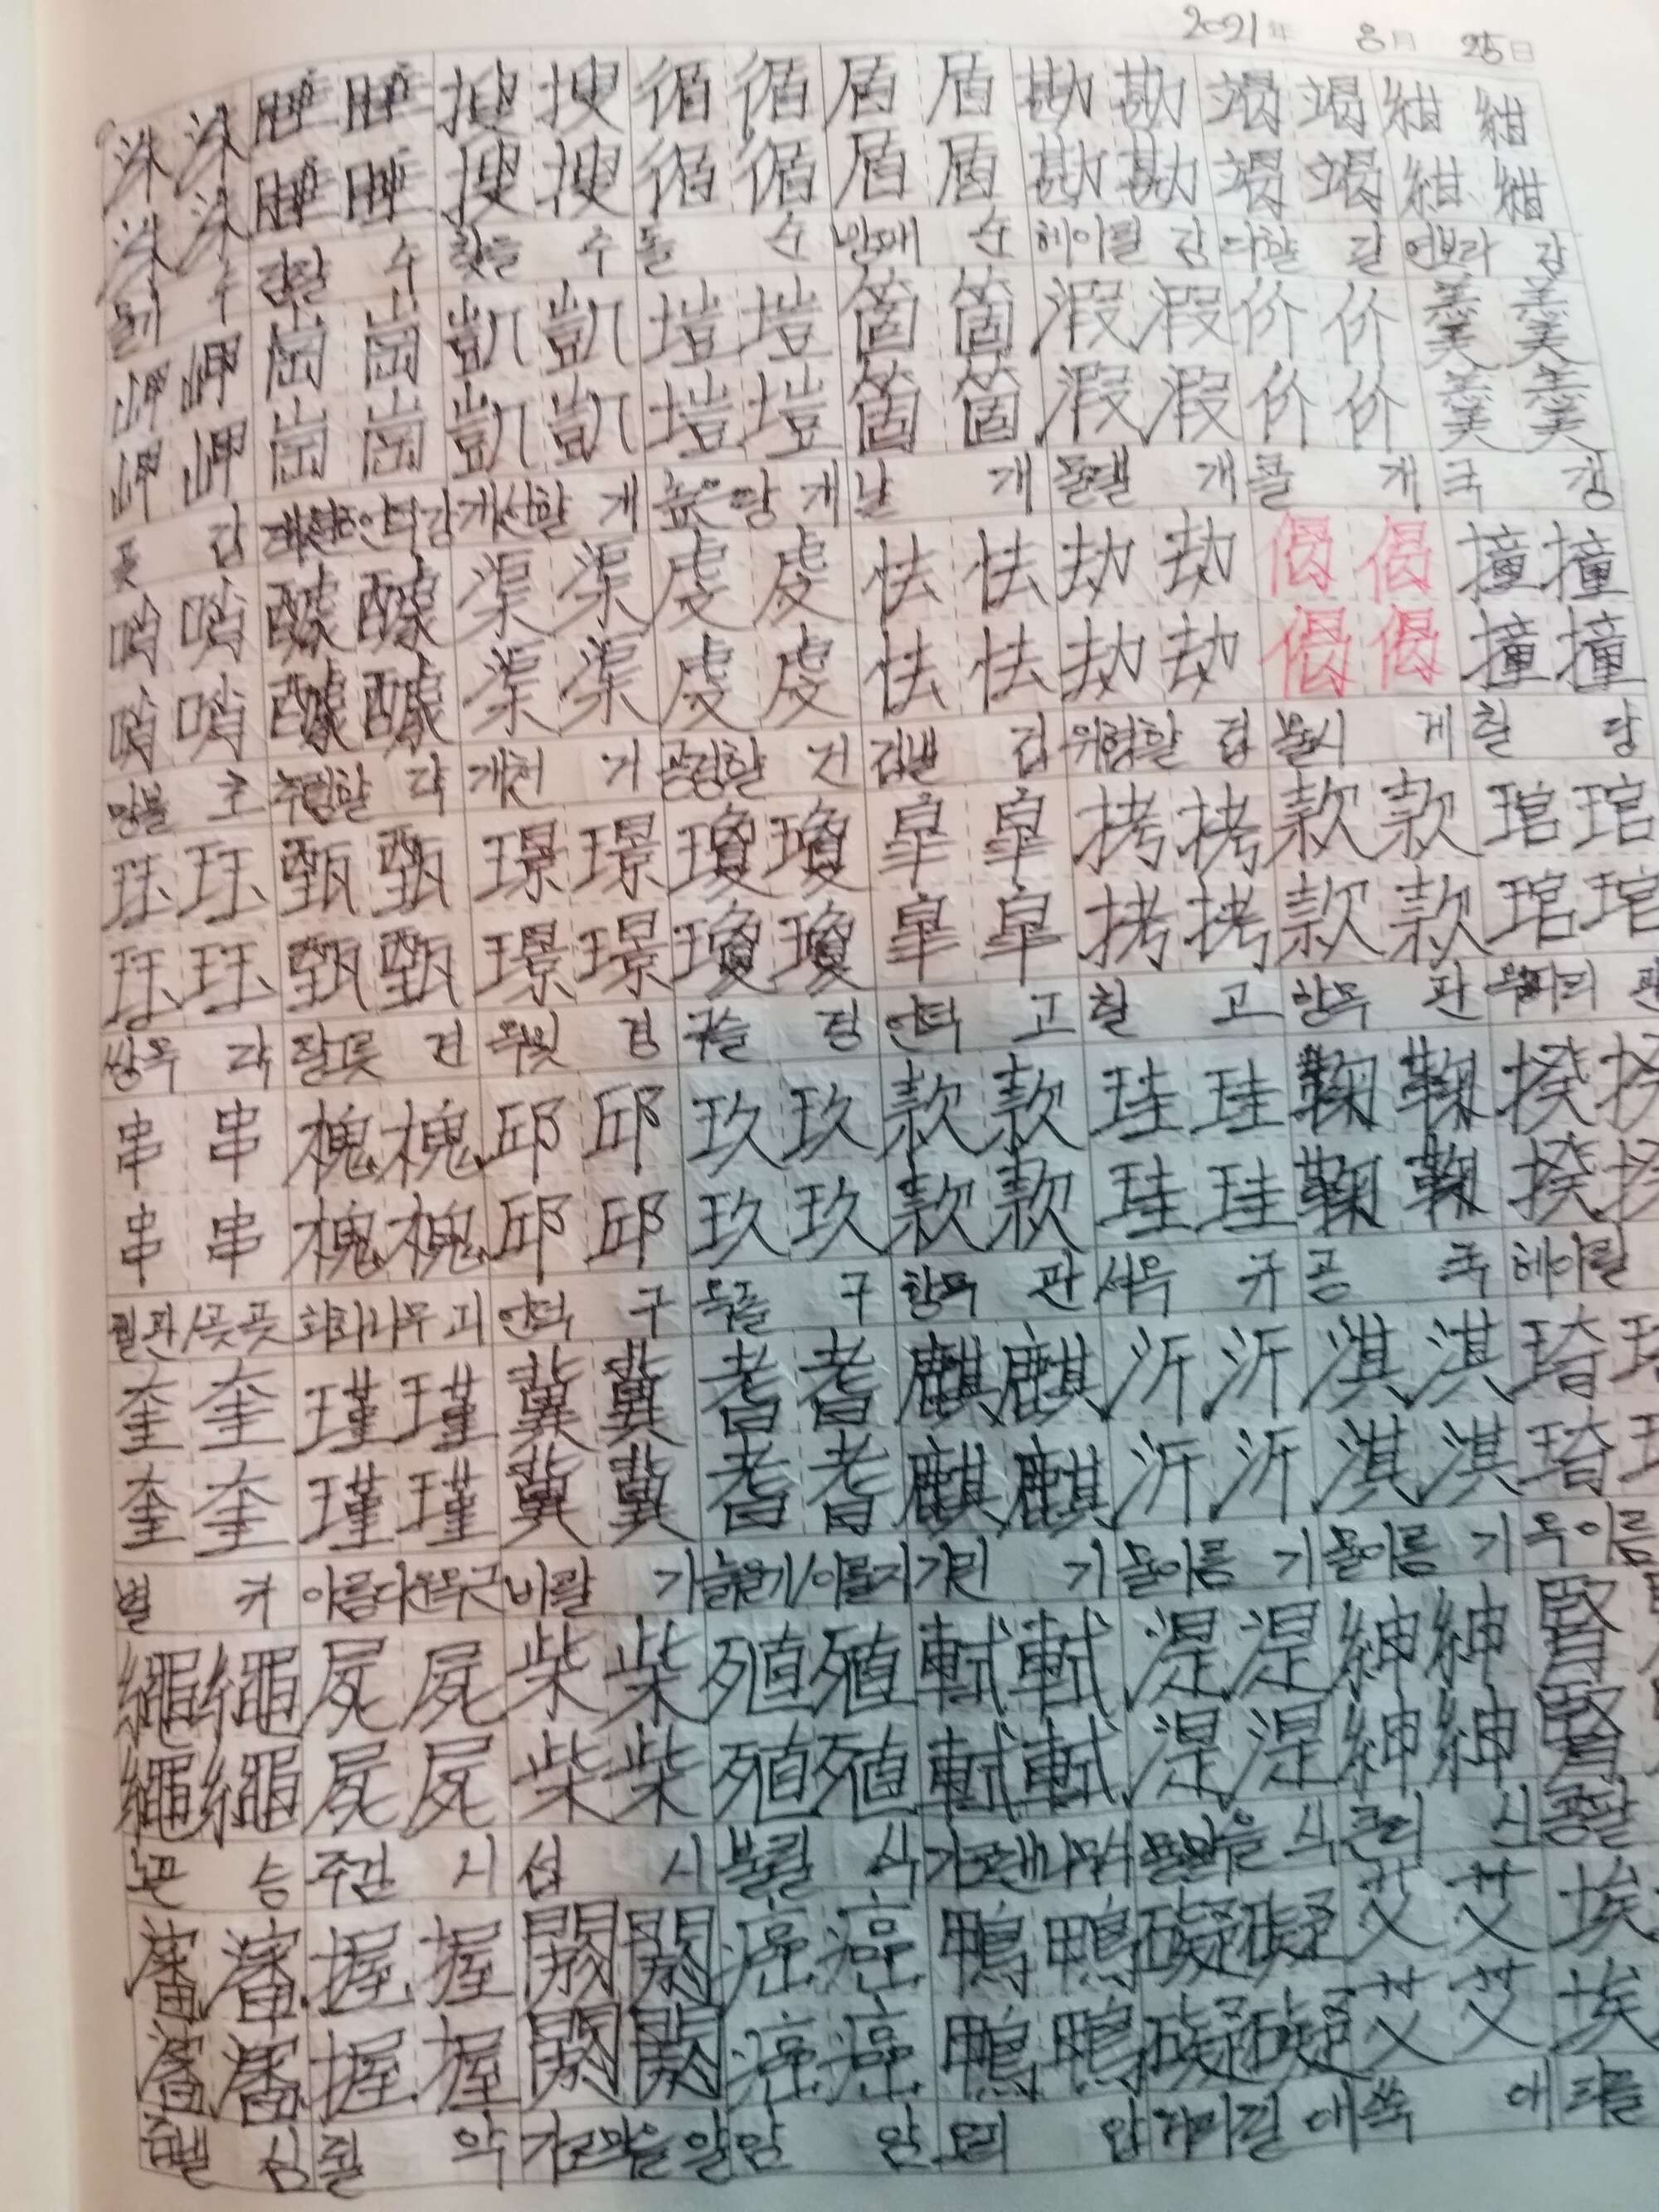 2021年 8月 25日
洙 洙 睡 睡 搜 搜 循 循 盾 盾 勘 勘 竭 竭 紺 紺
洙 洙 睡 睡 搜 搜 循 循 盾 盾 勘 勘 竭 竭 紺 紺
수 잠잘 수 찾을 수 돌 순 방패 순 헤아릴 감 다할 갈 연보라 감
岬 岬 崗 崗 凱 凱 塏 塏 箇 箇 溊 溊 价 价 羹 羹
岬 岬 崗 崗 凱 凱 塏 塏 箇 箇 溊 溊 价 价 羹 羹
곶 갑 개선할 개 높은땅 개 낱 개 개 클 개 국 갱
哨 哨 醵 醵 渠 渠 虔 虔 怯 怯 劫 劫 偈 偈 撞 撞
哨 哨 醵 醵 渠 渠 虔 虔 怯 怯 劫 劫 偈 偈 撞 撞
망볼 초 추렴할 갹 개천 거 공경할 건 겁낼 겁 위협할 겁 불시 게 칠 당
珏 珏 甄 甄 璟 璟 瓊 瓊 皐 皐 拷 拷 款 款 琯 琯
珏 珏 甄 甄 璟 璟 瓊 瓊 皐 皐 拷 拷 款 款 琯 琯
쌍옥 각 질그릇 견 옥빛 경 구슬 경 언덕 고 칠 고 항목 관 옥피리 관
串 串 槐 槐 邱 邱 玖 玖 款 款 珪 珪 鞠 鞠 揆 揆
串 串 槐 槐 邱 邱 玖 玖 款 款 珪 珪 鞠 鞠 揆 揆
꿸관/곶곶 회화나무 괴 언덕 구 옥돌 구 항목 관 서옥 규 공 국 헤아릴
奎 奎 瑾 瑾 冀 冀 耆 耆 麒 麒 沂 沂 淇 淇 琦
奎 奎 瑾 瑾 冀 冀 耆 耆 麒 麒 沂 沂 淇 淇 琦
별 규 아름다운옥 근 바랄 기 늙을기/이룰지 기린 기 물이름 기 물이름 기 옥이름
繩 繩 屍 屍 柴 柴 殖 殖 軾 軾 湜 湜 紳 紳 腎
繩 繩 屍 屍 柴 柴 殖 殖 軾 軾 湜 湜 紳 紳 腎
노끈 승 주검 시 섶 시 불릴 식 가로댄나무식 물맑을 식 큰띠 신 콩팥
瀋 瀋 握 握 閼 閼 癌 癌 鴨 鴨 礙 礙 艾 艾 埃
瀋 瀋 握 握 閼 閼 癌 癌 鴨 鴨 礙 礙 艾 艾 埃
즙낼 심 쥘 악 가로막을 알 암 암 오리 압 거리낄 애 쑥 애 티끌